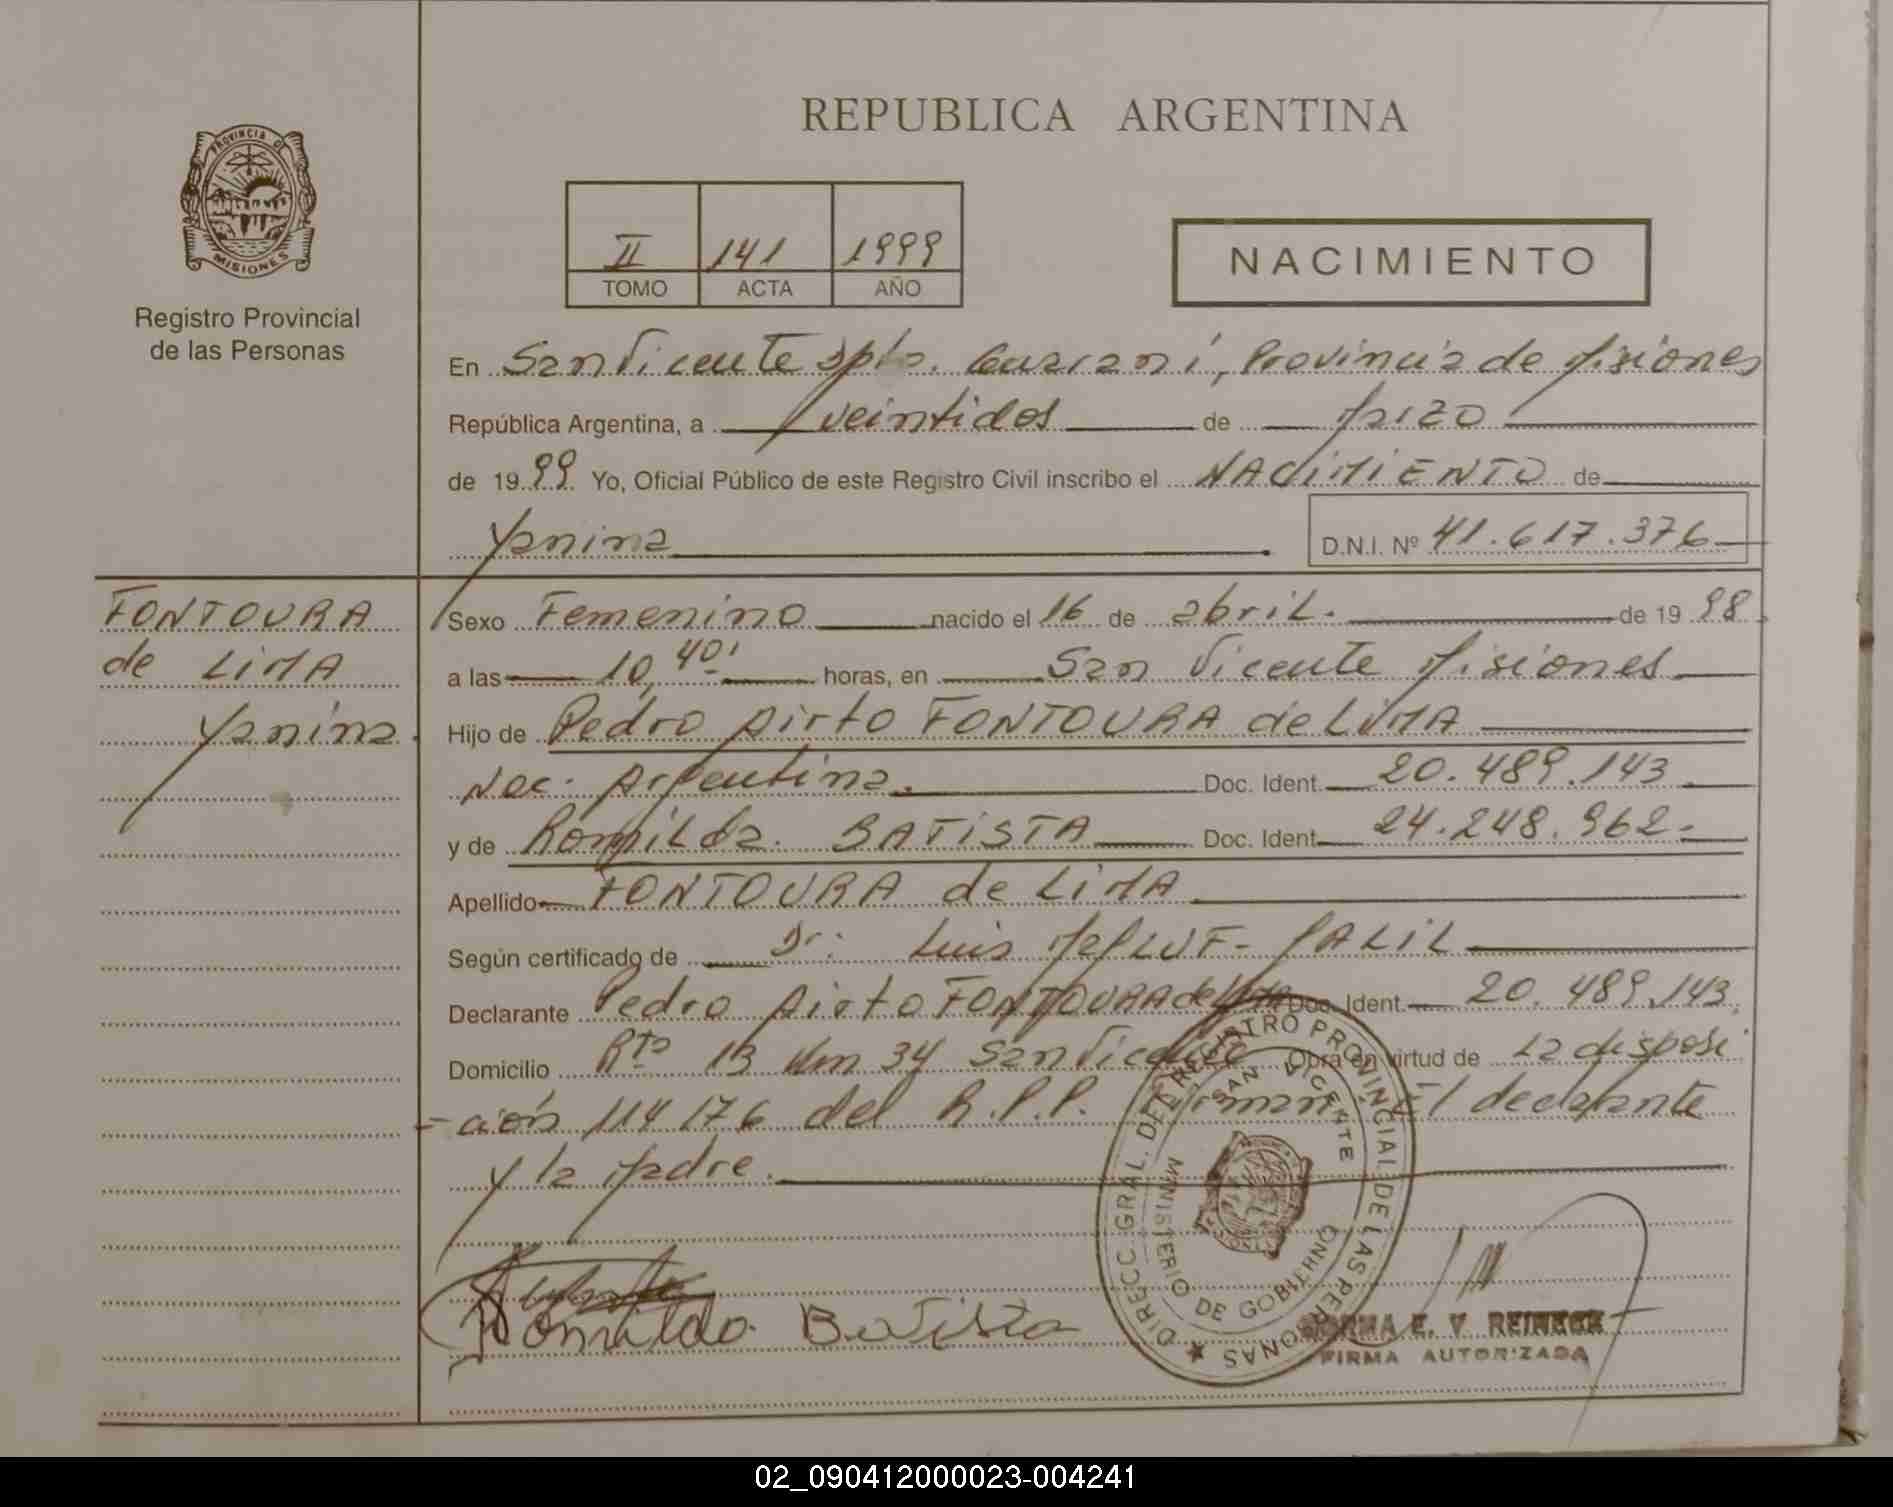 REPUBLICA ARGENTINA
PROVINCIA DE
MISIONES
Registro Provincial
de las Personas
II 141 1999
TOMO ACTA AÑO
NACIMIENTO
En San Vicente Dpto. Guaraní, Provincia de Misiones
República Argentina, a veintidos de Marzo
de 1999 Yo, Oficial Público de este Registro Civil inscribo el NACIMIENTO de
Yanina D.N.I. Nº 41.617.376
FONTOURA
de LIMA
Yanina.
Sexo Femenino nacido el 16 de abril. de 1998.
a las 10,40' horas, en San Vicente Misiones
Hijo de Pedro Airto FONTOURA de LIMA
Nac. Argentina. Doc. Ident. 20.489.143
y de Romilda. BATISTA Doc. Ident. 24.248.962.
Apellido FONTOURA de LIMA
Según certificado de Dr. Luis JALIL
Declarante Pedro Airto FONTOURA de LIMA Doc. Ident. 20.489.143.
Domicilio Rta 13 Km 34 San Vicente Obra en virtud de La disposi
-ción 114/76 del R.P.P. Firman: El declarante
y la Madre.
Romilda Batista
DIRECC. GRAL. DEL REGISTRO PROVINCIAL DE LAS PERSONAS
SAN VICENTE
MINISTERIO DE GOBIERNO
NORMA E. V. REINECK
FIRMA AUTORIZADA
02_090412000023-004241